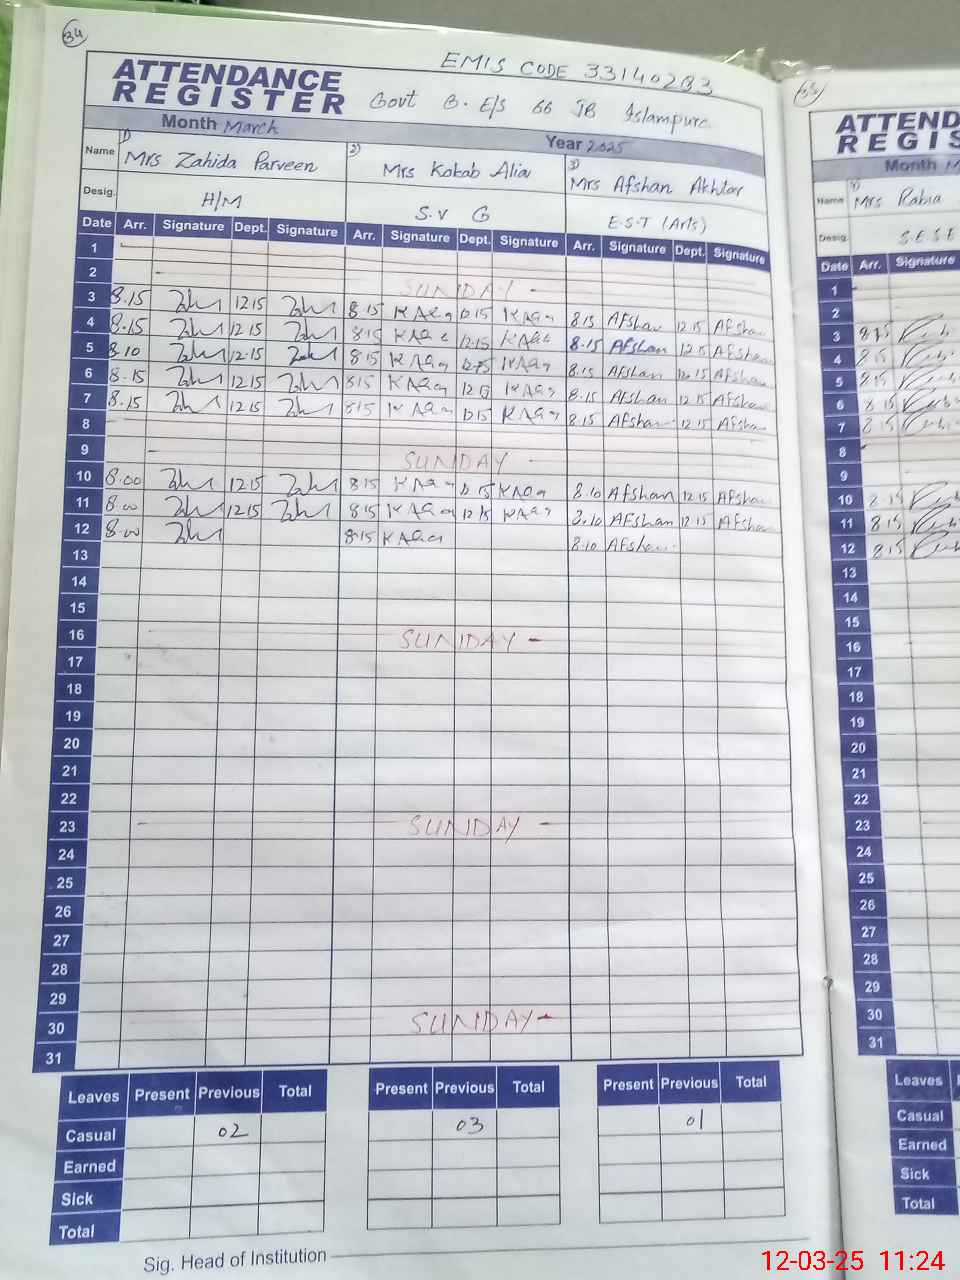 34
EMIS CODE 33140283
ATTENDANCE
REGISTER
Govt G. E/S 66 JB Islampura
Month March
Year 2025
Name
1) Mrs Zahida Parveen
2) Mrs Kokab Alia
3) Mrs Afshan Akhtar
Desig.
H/M
S.V G
E.S.T (Arts)
Date Arr. Signature Dept. Signature Arr. Signature Dept. Signature Arr. Signature Dept. Signature
1
2 SUNDAY
3 8.15 12 15 8 15 12 15 8.15 Afshan 12 15 Afshan
4 8.15 12 15 8 15 12.15 8.15 Afshan 12 15 Afshan
5 8.10 12.15 8 15 12.15 8.15 Afshan 12.15 Afshan
6 8.15 12 15 8 15 12 15 8.15 Afshan 12 15 Afshan
7 8.15 12 15 8 15 12 15 8.15 Afshan 12 15 Afshan
8
9 SUNDAY
10 8.00 12 15 8 15 12 15 8.10 Afshan 12 15 Afshan
11 8.00 12 15 8 15 12 15 8.10 Afshan 12 15 Afshan
12 8.00 8.15 8.10 Afshan
13
14
15
16 SUNDAY
17
18
19
20
21
22
23 SUNDAY
24
25
26
27
28
29
30 SUNDAY
31
Leaves Present Previous Total Present Previous Total Present Previous Total
Casual 02 03 01
Earned
Sick
Total
Sig. Head of Institution
35
ATTEND
REGIS
Month M
Name 1) Mrs Rabia
Desig. S.E.S.E
Date Arr. Signature
1
2
3 8 15
4 8 15
5 8 15
6 8 15
7 8 15
8
9
10 8.15
11 8.15
12 8.15
13
14
15
16
17
18
19
20
21
22
23
24
25
26
27
28
29
30
31
Leaves
Casual
Earned
Sick
Total
12-03-25 11:24